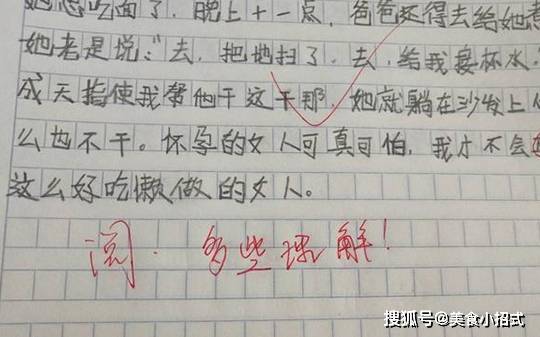 她想吃面了，晚上十一点，爸爸还得去给她煮
她老是说："去，把地扫了，去，给我接杯水。
成天指使我帮他干这干那，她就躺在沙发上什
么也不干。怀孕的女人可真可怕，我才不会
这么好吃懒做的女人。
阅．多些理解！
搜狐号@美食小招式